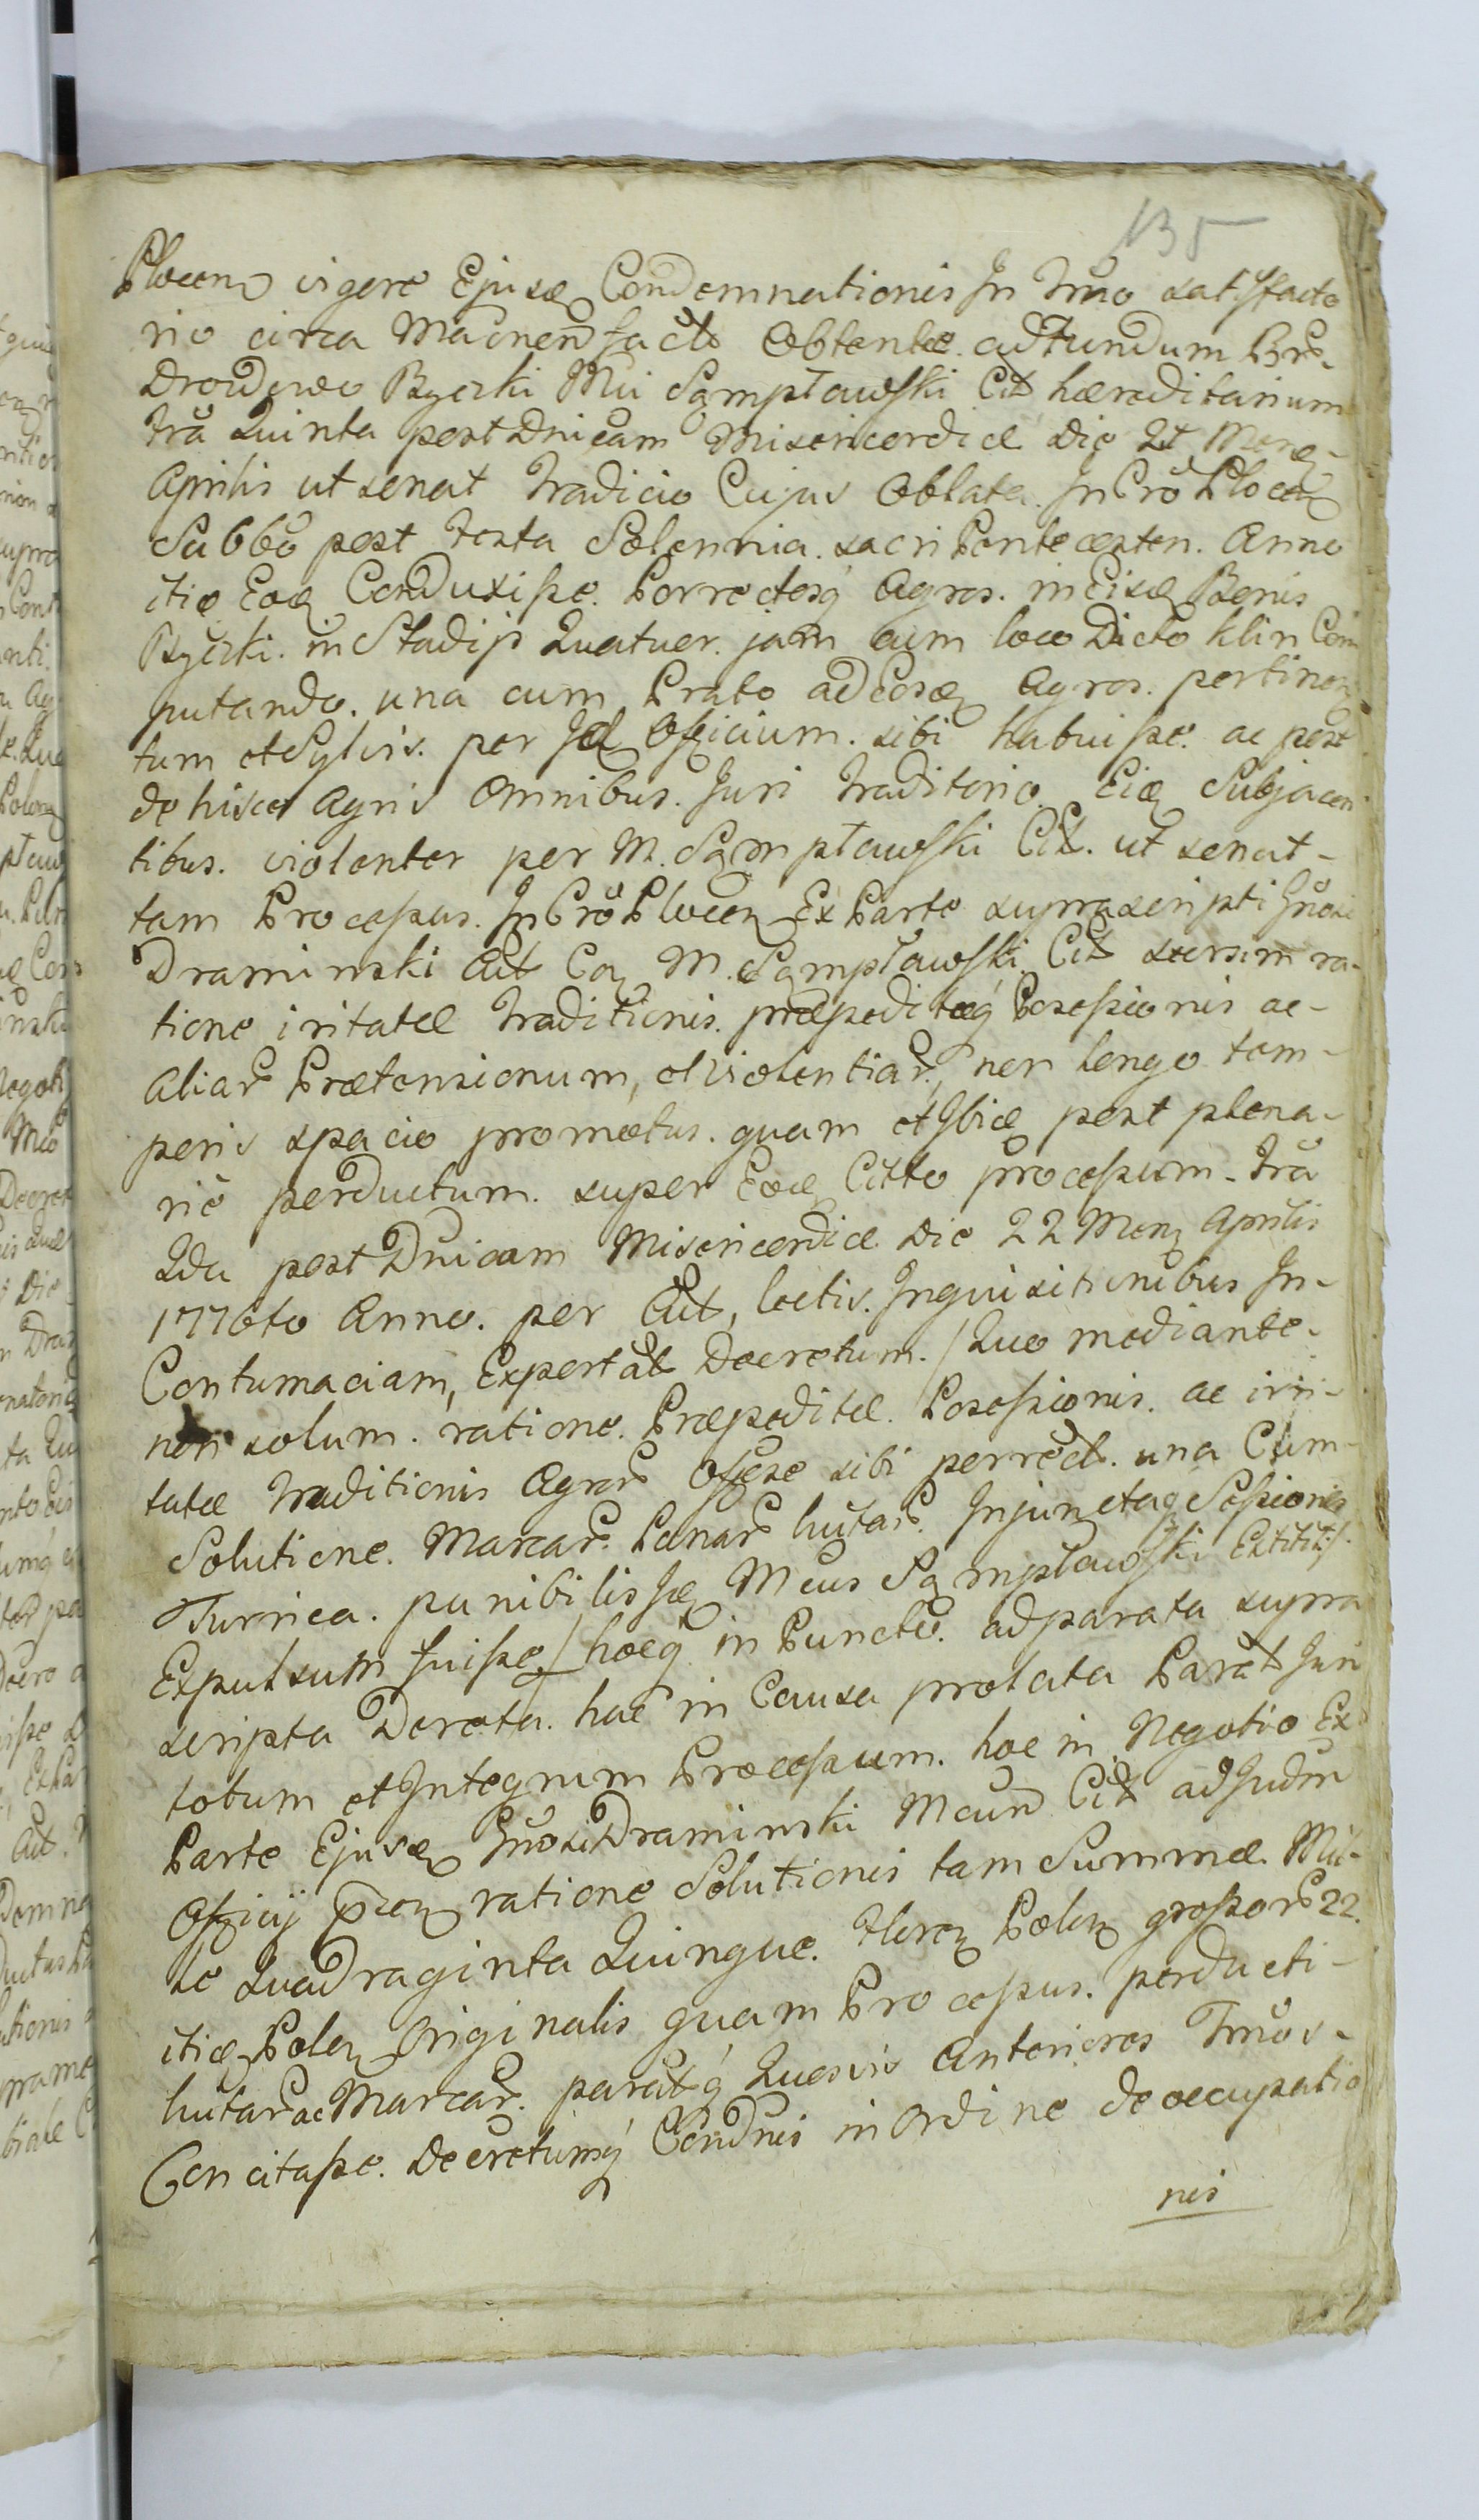 135
Plocen vigore Ejusd Condemnationis In Trno satisfacto
rio circa Maonen facto Obtentæ ad Fundum Bno.
Drozdowo Ryczki Mci Sąmpławski Cit hæreditarium
Fra Quinta post Dnicam Misericordiæ die 21 Mens
Aprilis ut sonat Tradicio Cujus Oblata In Crō Plocen
Sabbō post Festa Solennia sacri Pentecosten. Anno
itid Eod Conduxisse. Porrectosq Agros. in Eisd Bonis
Ryczki. in Stadijs Quatuor. jam cum loco Dicto Klin Com
putando. una cum Prato ad Eosd Agros. pertinen
tum et Sylvis. per Id Officium. sibi habuisse. ac post
de hisce Agris Omnibus. Juri Traditorio Eid Subjacen
tibus. violenter per M. Sąmpławski Cit. ut sonat
tam Processus. In Crō Plocen Ex Parte suprascripti Gnosi
Draminski Act Con M. Sąmpławski Cit seorsim ra-
tione iritatæ Traditionis. præpeditæq Possessionis ac
aliar Prætensionum, et violentiar, non longo tem-
poris spacio promotus. quam et Ibid post plena-
rie perductum. super Eod Citto processum. Fra
2da post Dnicam Misericordiæ Die 22 Mens Aprilis
1776to Anno. per Act, lectis. Inquisitionibus In
Contumaciam, Exportat Decretum. / Quo mediante.
non solum. ratione. Præpeditæ. Possessionis. ac irri-
tatæ Traditionis Agror Offose sibi porrect. una Cum
Solutione. Marcar. Pænar luitar. Injunctaq Sessiones
Turrica. punibilis Id Mcus Sąmpławski Extitit /.
Expulsum fuisse / hocq in Puncto. ad parata supra
scripta Dereta. hac in Causa prolata Parat Juri
totum et Integrum Processum. hoc in Negotio Ex
Parte Ejusd Gnosi Draminski Mcum Cit ad Judm
Officij Pren ratione Solutionis tam Summæ Mil-
le Quadraginta Quinque. Floren Polon grossor 22.
itid Polon Originalis quam Processus. perducti-
luitar ac Marcar. paratq Quosvis Anteriores Trnos-
Concitasse. Decretumq Condnis in Ordine de occupatio
nis